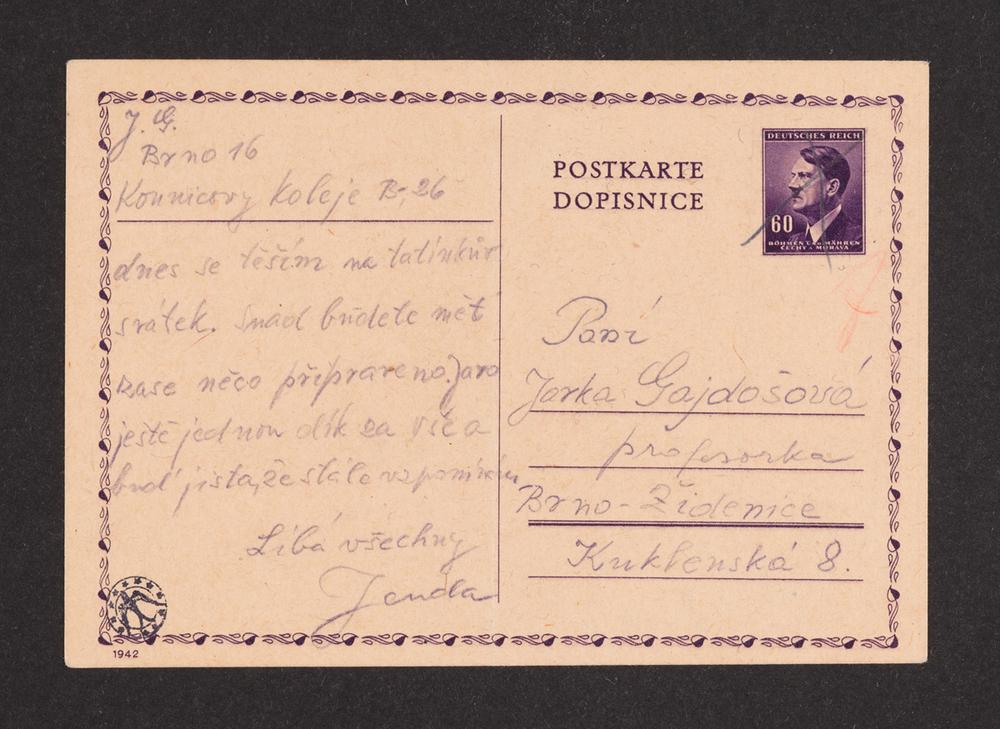 J. G.
Brno 16
Kounicovy koleje B, 26
dnes se těším na tatínkův
svátek. Snad budete mět
zase něco připraveno. Jaro
ještě jednou dík za vše a
buď jista, že stále vzpomínám
Líbá všechny
Jenda
1942
POSTKARTE
DOPISNICE
DEUTSCHES REICH
60
BÖHMEN U. MÄHREN
ČECHY A MORAVA
Paní
Jarka Gajdošová
profesorka
Brno-Židenice
Kuklenská 8.